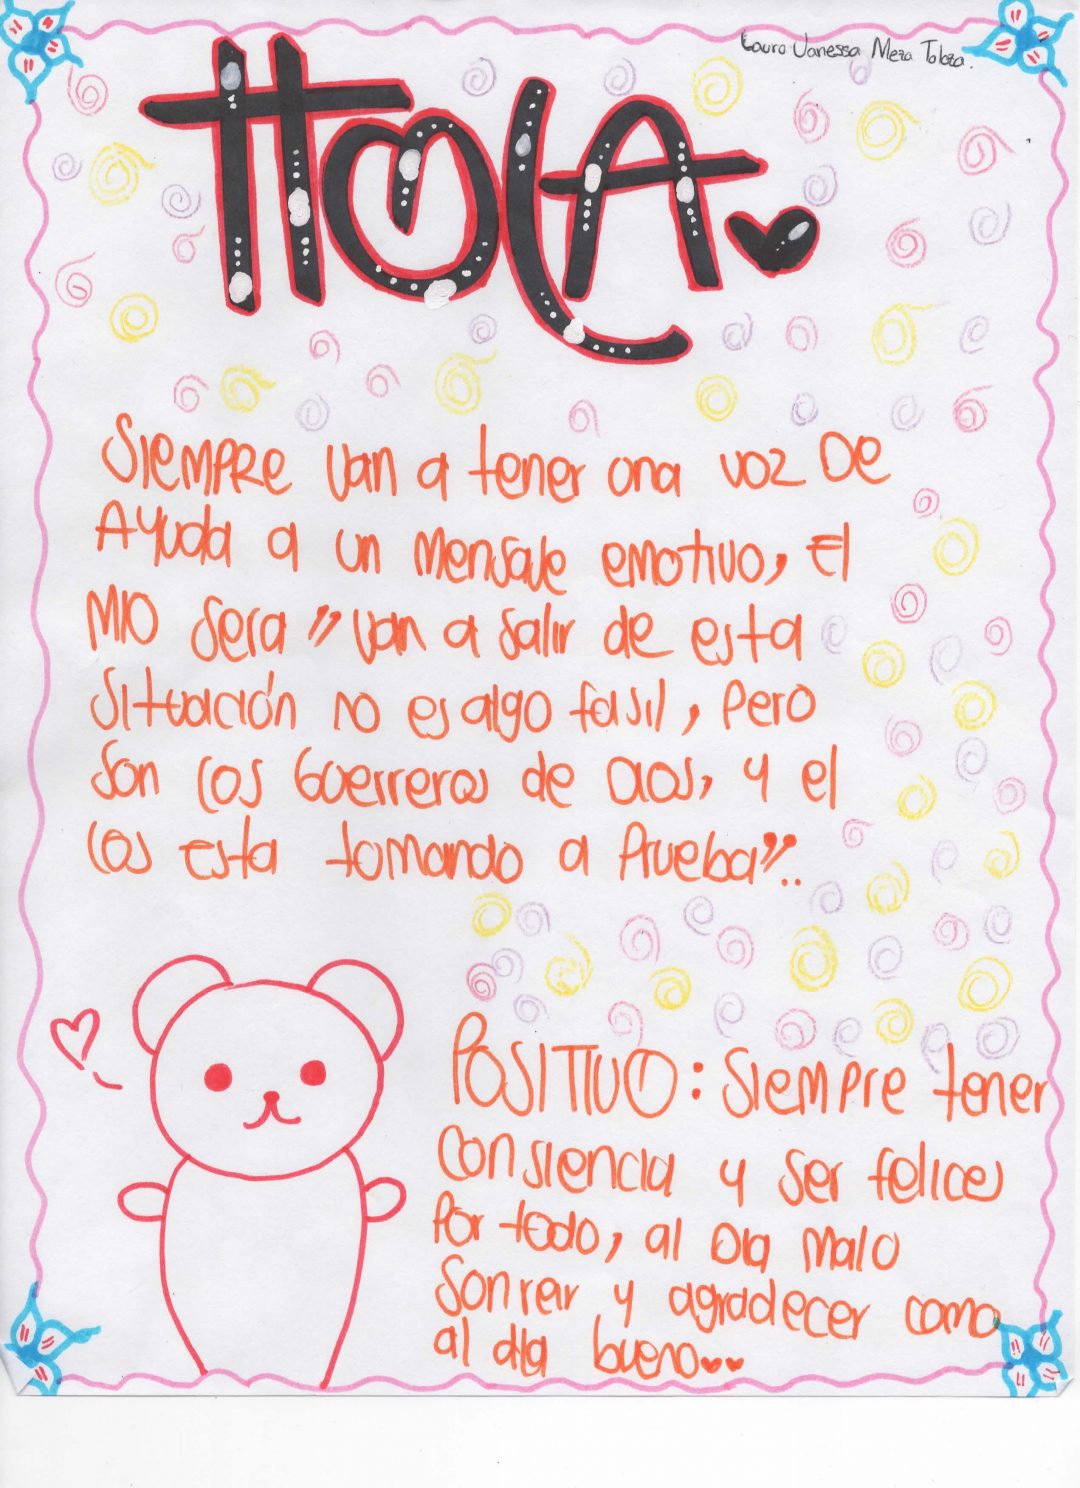 Laura Vanessa Meza Toloza.
HOLA
SIEMPRE van a tener una voz DE
Ayuda a un mensaje emotivo, El
MIO sera "van a salir de esta
situación no es algo fasil, pero
son los Guerreros de Dios, y el
los esta tomando a Prueba"..
POSITIVO: Siempre tener
consiencia y ser felices
Por todo, al Dia malo
Sonreir y agradecer como
al dia bueno